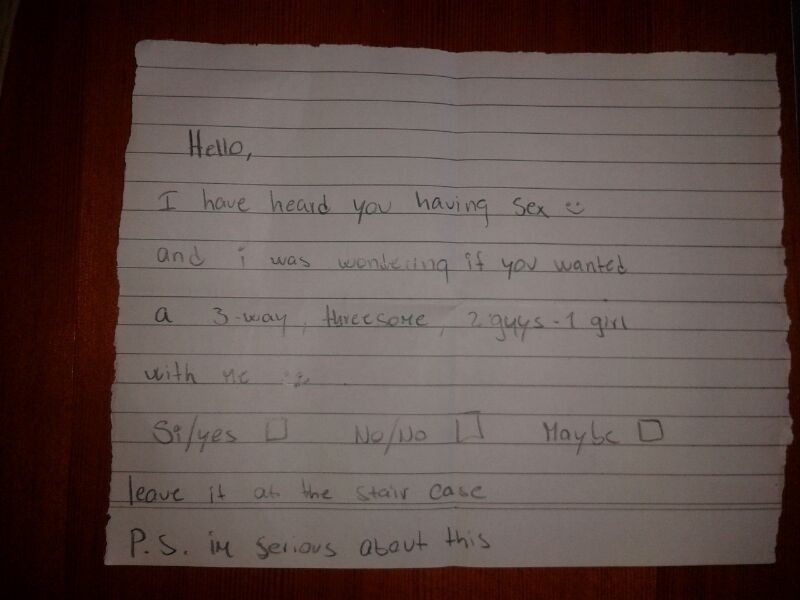 Hello,
I have heard you having sex :)
and i was wondering if you wanted
a 3-way, threesome, 2 guys-1 girl
with me :)
Si/yes □ No/No □ Maybe □
leave it at the stair case
P.S. im serious about this